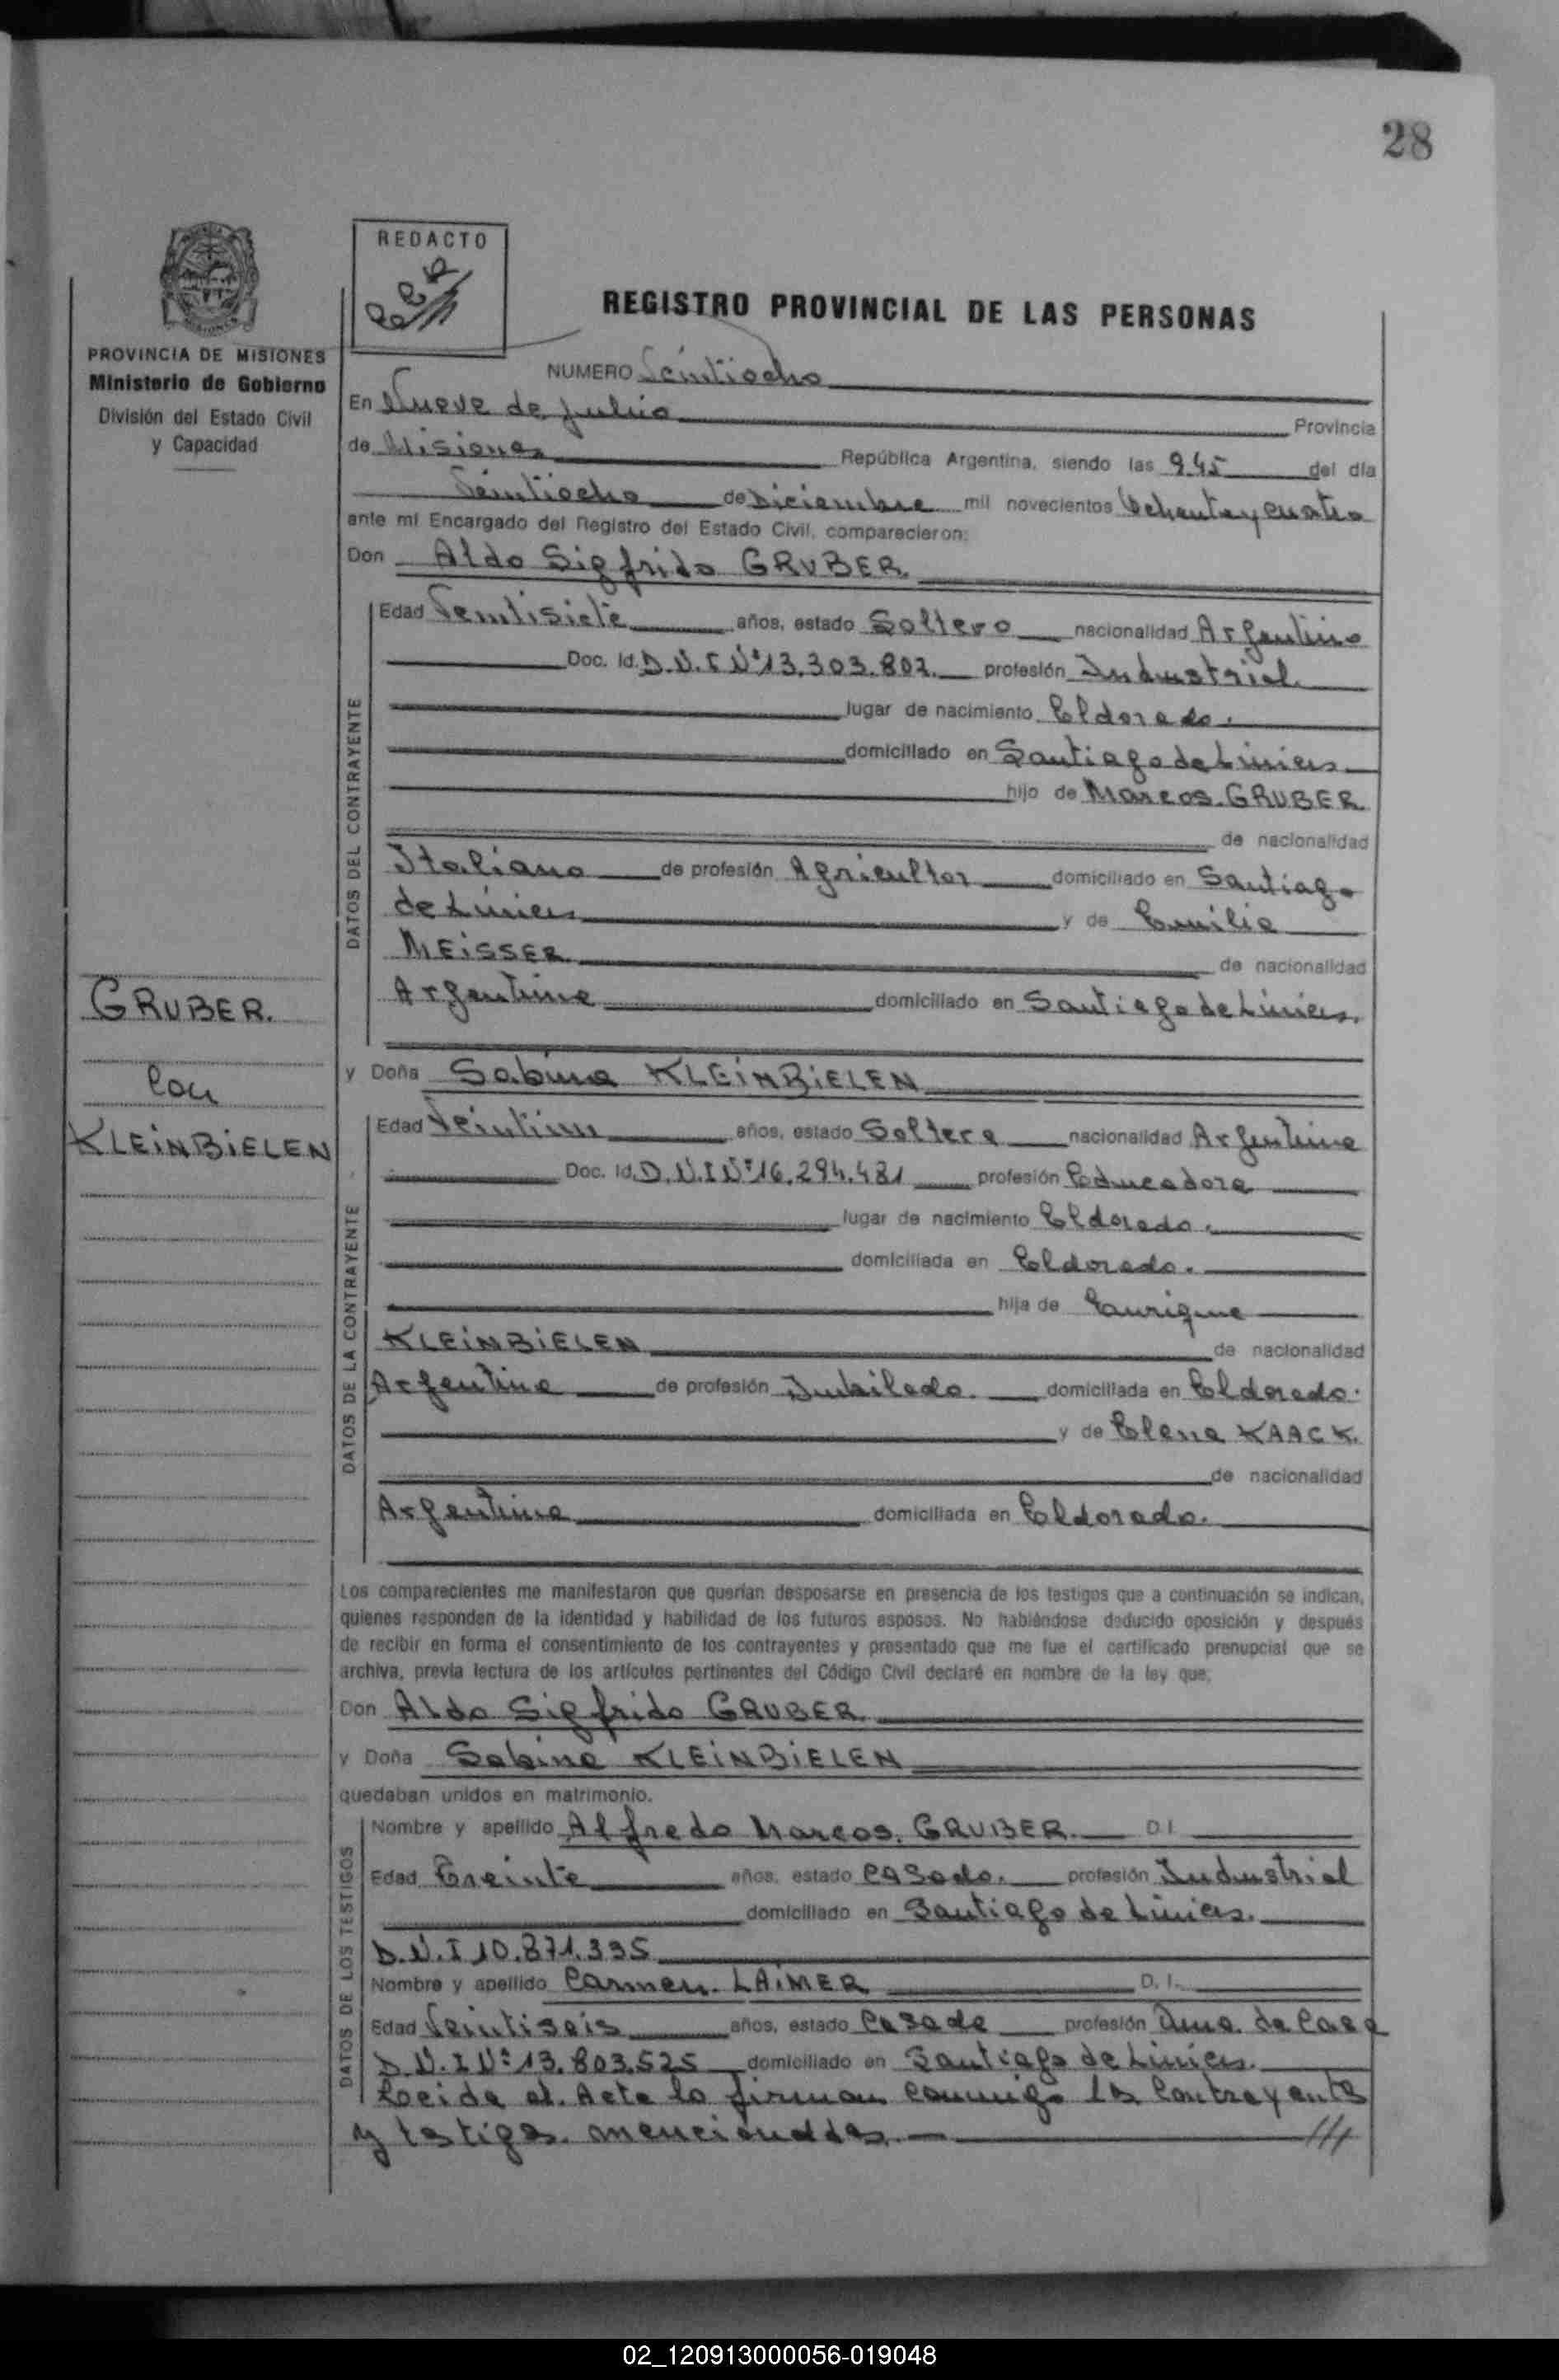 28
REDACTO
REGISTRO PROVINCIAL DE LAS PERSONAS
PROVINCIA DE MISIONES
Ministerio de Gobierno
División del Estado Civil
y Capacidad
NUMERO Veintiocho
En Nueve de Julio Provincia
de Misiones República Argentina, siendo las 9.45 del día
Veintiocho de Diciembre mil novecientos Ochenta y cuatro
ante mí Encargado del Registro del Estado Civil, comparecieron:
Don Aldo Sigfrido GRUBER.
DATOS DEL CONTRAYENTE
Edad Veintisiete años, estado Soltero nacionalidad Argentino
Doc. Id. D.N.I Nº 13.303.802. profesión Industrial.
lugar de nacimiento Eldorado.
domiciliado en Santiago de Liniers
hijo de Marcos GRUBER
de nacionalidad
Italiano de profesión Agricultor domiciliado en Santiago
de Liniers y de Emilia
MEISSER de nacionalidad
Argentina domiciliado en Santiago de Liniers.
GRUBER.
con
KLEINBIELEN
y Doña Sabina KLEINBIELEN
DATOS DE LA CONTRAYENTE
Edad Veintiun años, estado Soltera nacionalidad Argentina
Doc. Id. D.N.I Nº 16.294.481 profesión Educadora
lugar de nacimiento Eldorado.
domiciliada en Eldorado.
hija de Enrique
KLEINBIELEN de nacionalidad
Argentino de profesión Jubilado. domiciliada en Eldorado.
y de Elena KAACK.
de nacionalidad
Argentina domiciliada en Eldorado.
Los comparecientes me manifestaron que querían desposarse en presencia de los testigos que a continuación se indican,
quienes responden de la identidad y habilidad de los futuros esposos. No habiéndose deducido oposición y después
de recibir en forma el consentimiento de los contrayentes y presentado que me fue el certificado prenupcial que se
archiva, previa lectura de los artículos pertinentes del Código Civil declaré en nombre de la ley que,
Don Aldo Sigfrido GRUBER
y Doña Sabina KLEINBIELEN
quedaban unidos en matrimonio.
DATOS DE LOS TESTIGOS
Nombre y apellido Alfredo Marcos. GRUBER. D.I.
Edad Treinta años, estado casado. profesión Industrial
domiciliado en Santiago de Liniers.
D.N.I 10.871.335
Nombre y apellido Carmen. LAIMER D. I.
Edad Veintiseis años, estado Casada profesión Ama de Casa
D.N.I Nº 13.803.525 domiciliado en Santiago de Liniers.
Leida el Acta la firman conmigo los Contrayentes
y testigos mencionados. ///
02_120913000056-019048